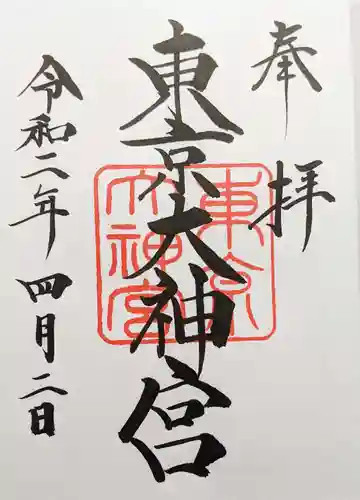 奉拝
東京大神宮
東京
大神宮
令和二年四月二日